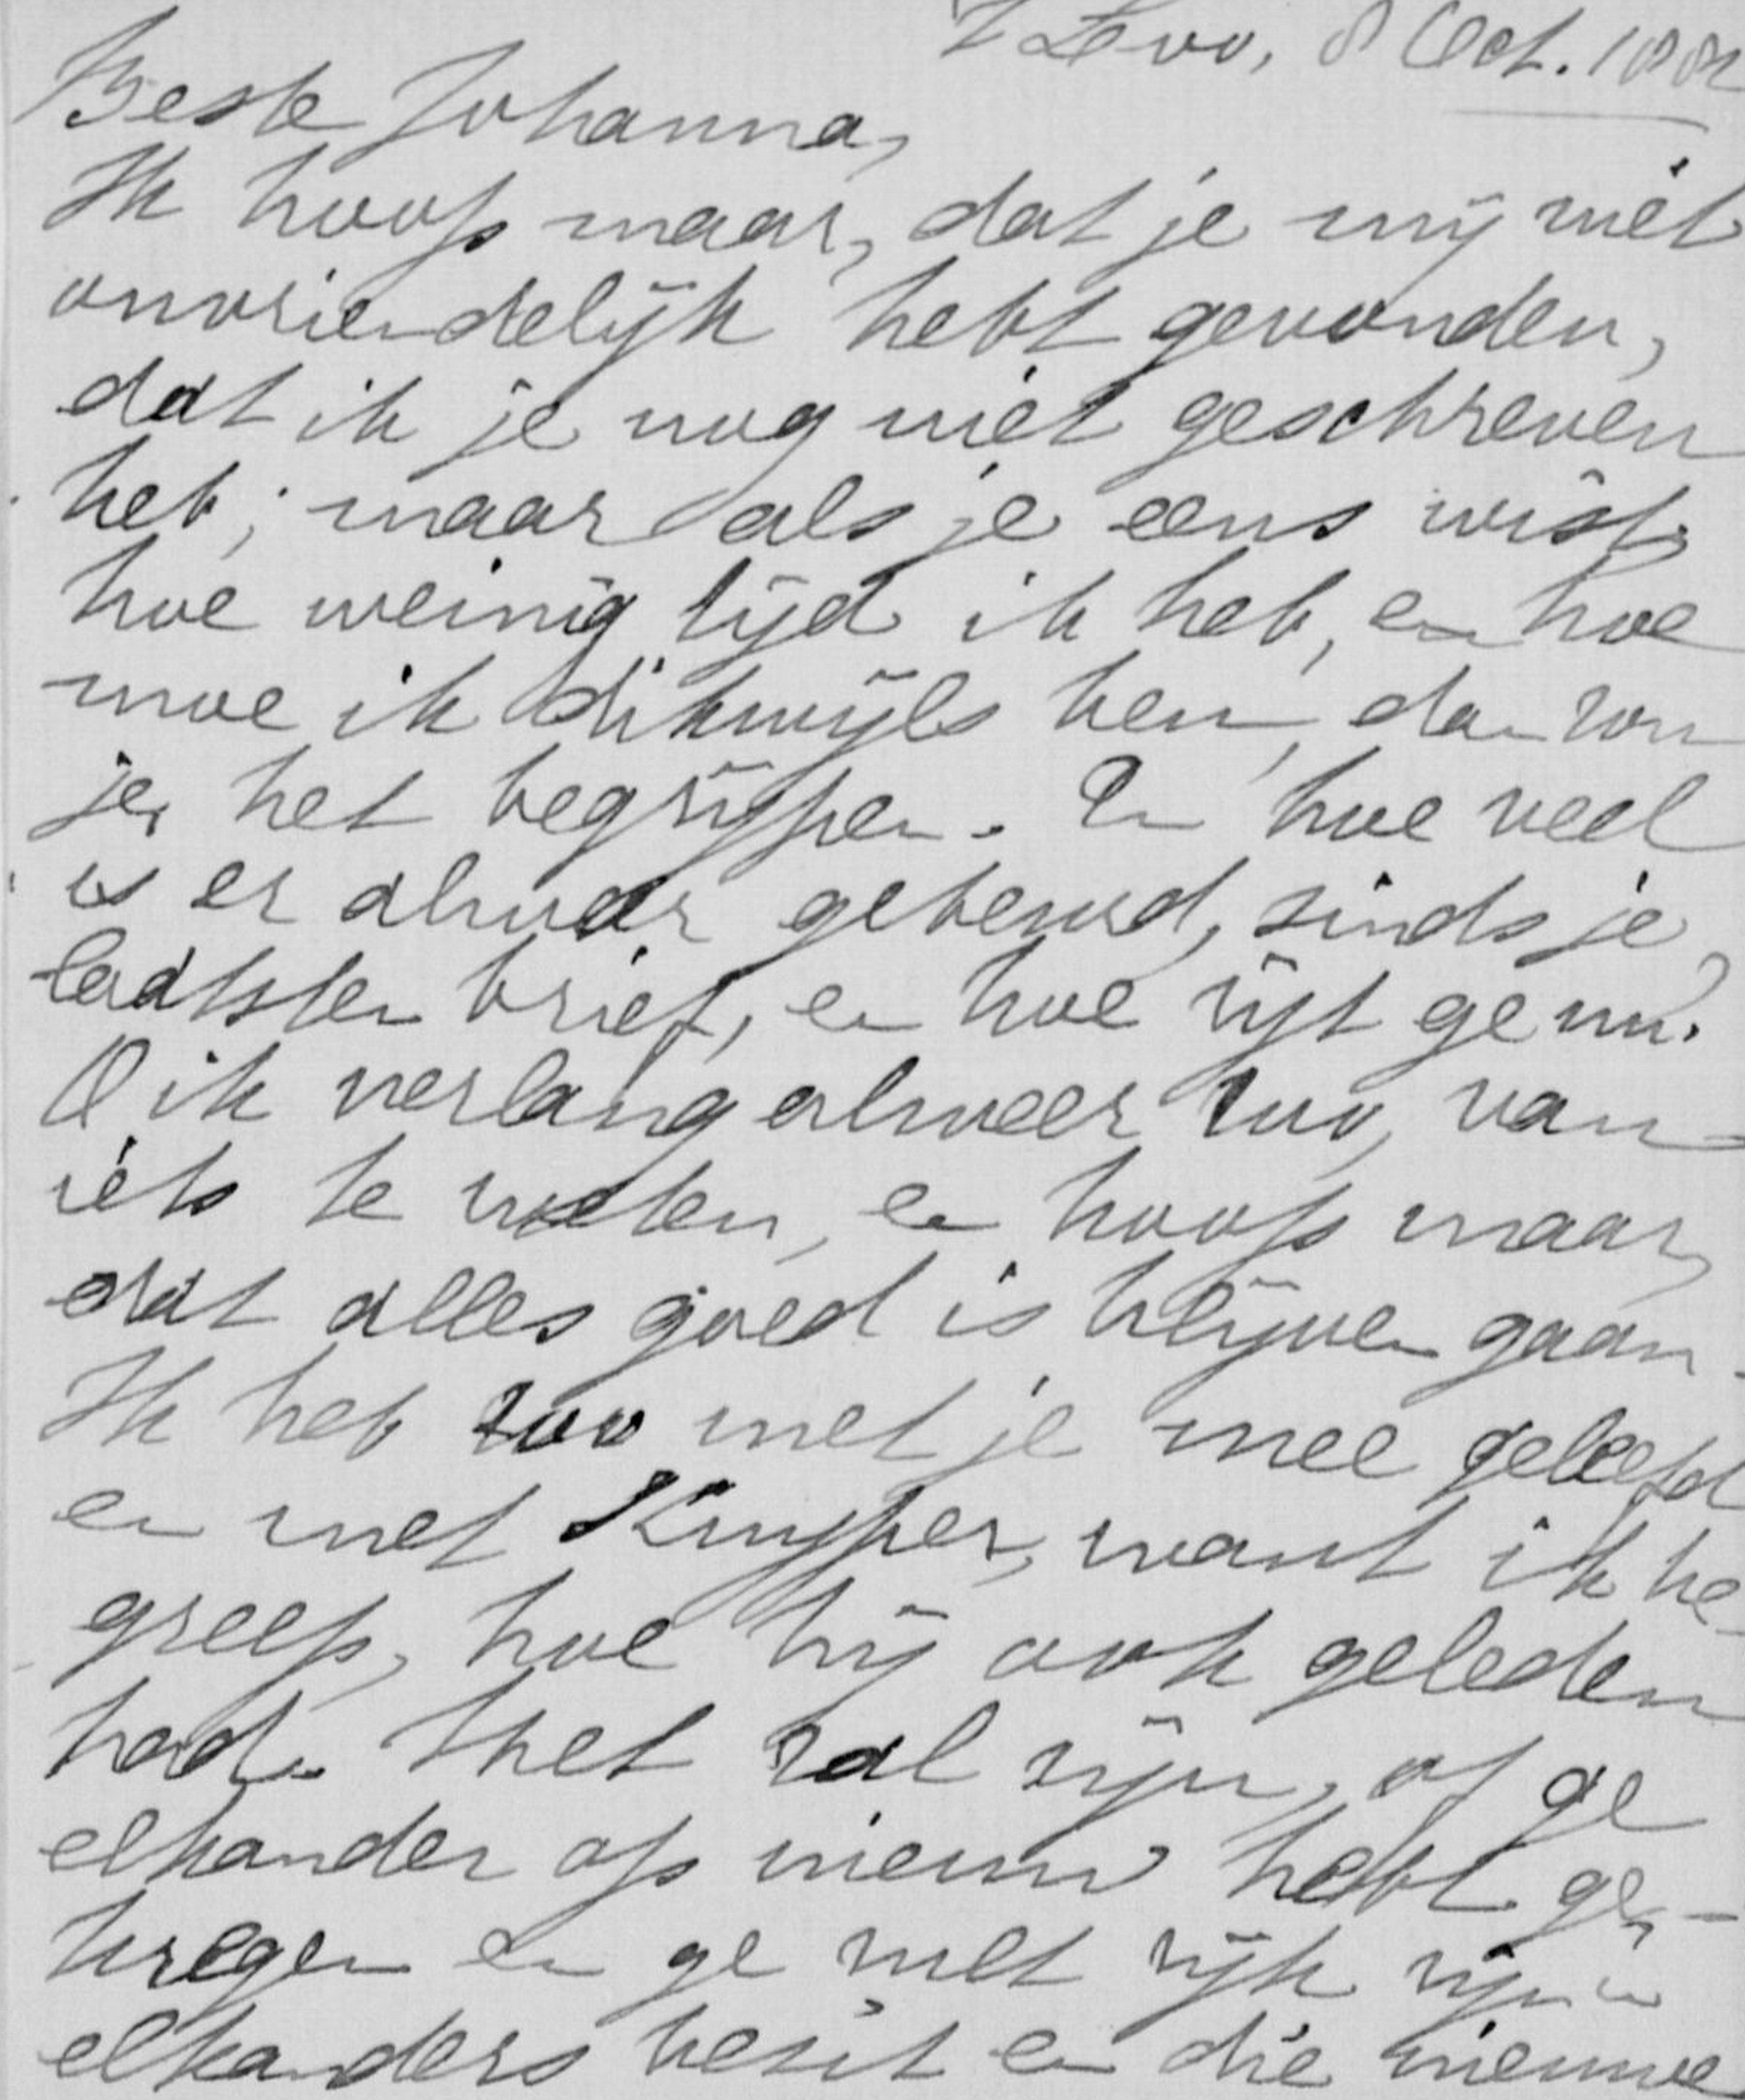 't Loo, 8 Oct. 1882
Beste Johanna,
Ik hoop maar, dat je mij niet
onvriendelijk hebt gevonden,
dat ik je nog niet geschreven
heb; maar als je eens wist,
hoe weinig tijd ik heb, en hoe
moe ik dikwijls ben, dan zou
je het begrijpen. En hoe veel
is er alweer gebeurd, sinds je
laatsten brief, en hoe zijt ge nu?
O ik verlang alweer zoo, van
iets te weten, en hoop maar,
dat alles goed is blijven gaan.
Ik heb zoo met je mee geleefd
en met Kuyper, want ik be-
greep, hoe hij ook geleden
had. Het zal zijn, of ge
elkander op nieuw hebt ge-
kregen en ge met rijk zijn in
elkanders bezit en die nieuwe